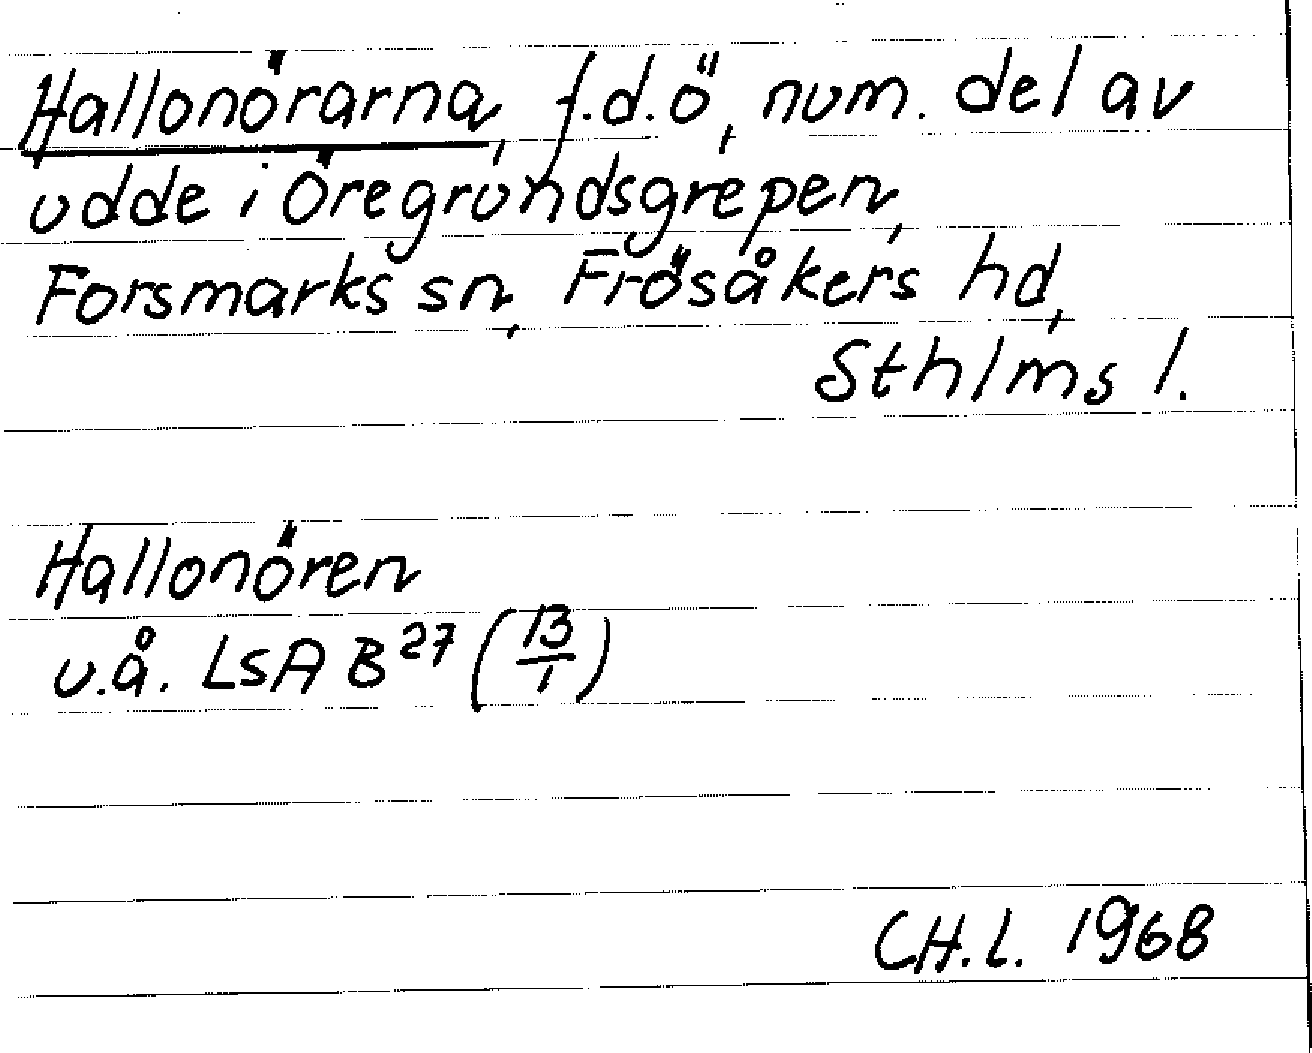 Hallonörarna, f.d.ö, num. del av
udde i Öregrundsgrepen,
Forsmarks sn, Frösåkers hd,
Sthlms l.
Hallonören
u.å. LSA B²⁷ (13/1)
CH.L. 1968